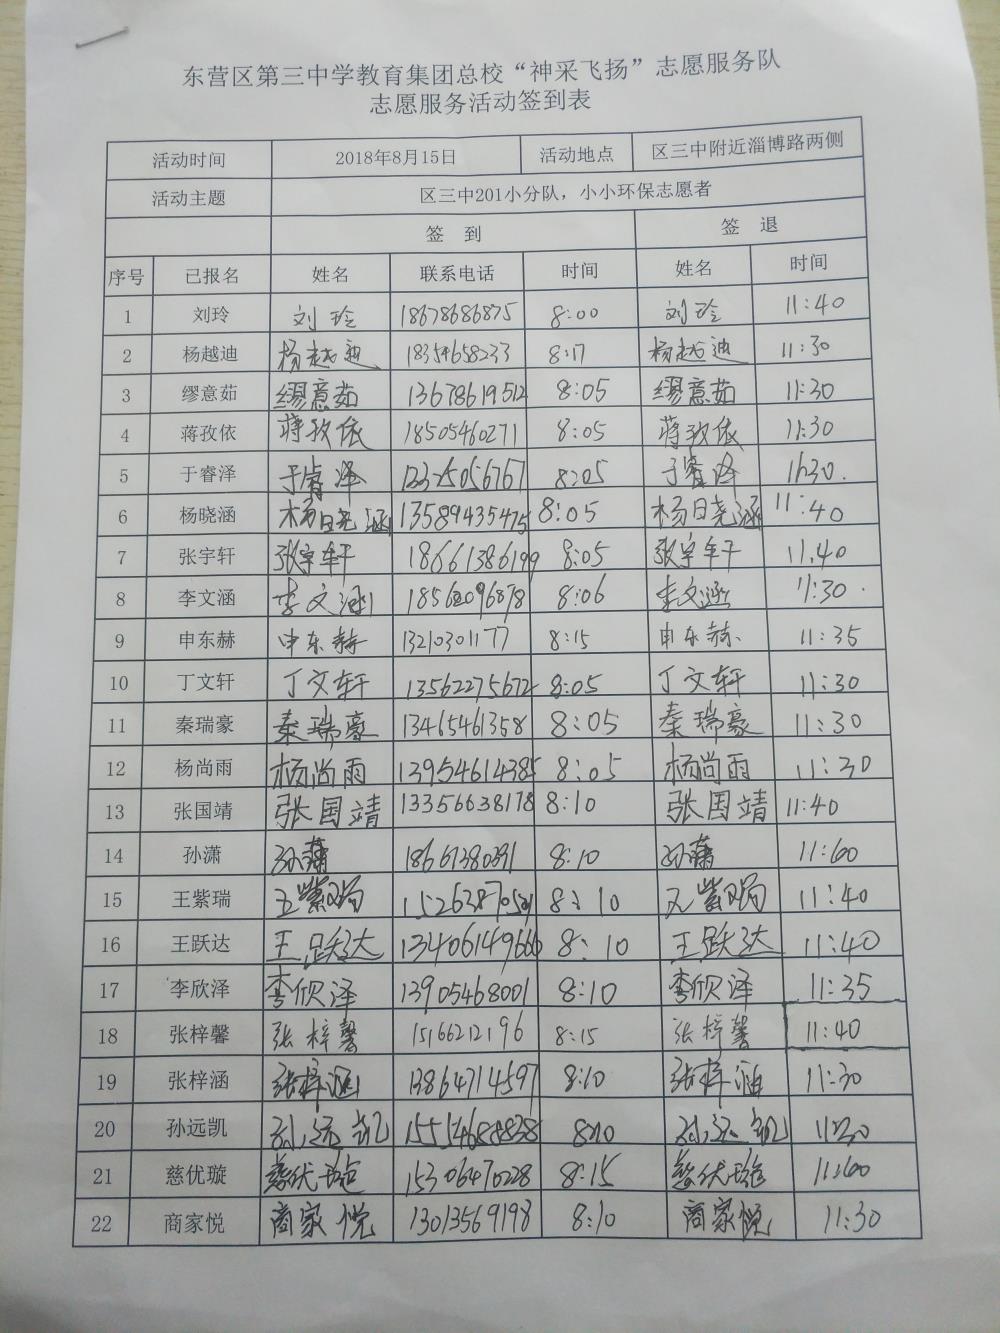 东营区第三中学教育集团总校“神采飞扬”志愿服务队
志愿服务活动签到表
活动时间 2018年8月15日 活动地点 区三中附近淄博路两侧
活动主题 区三中201小分队，小小环保志愿者
签 到 签 退
序号 已报名 姓名 联系电话 时间 姓名 时间
1 刘玲 刘玲 18678686875 8:00 刘玲 11:40
2 杨越迪 杨越迪 18354658233 8:17 杨越迪 11:30
3 缪意茹 缪意茹 13678619512 8:05 缪意茹 11:30
4 蒋孜依 蒋孜依 18505460271 8:05 蒋孜依 11:30
5 于睿泽 于睿泽 8:05 于睿泽 11:30.
6 杨晓涵 杨晓涵 13589435475 8:05 杨晓涵 11:40
7 张宇轩 张宇轩 18661386199 8:05 张宇轩 11:40
8 李文涵 李文涵 8:06 李文涵 11:30
9 申东赫 申东赫 13210301177 8:15 申东赫 11:35
10 丁文轩 丁文轩 13562275672 8:05 丁文轩 11:30
11 秦瑞豪 秦瑞豪 13465461358 8:05 秦瑞豪 11:30
12 杨尚雨 杨尚雨 13954614385 8:05 杨尚雨 11:30
13 张国靖 张国靖 13356638178 8:10 张国靖 11:40
14 孙潇 孙潇 18661380391 8:10 孙潇
15 王紫瑞 王紫瑞 8:10 王紫瑞 11:40
16 王跃达 王跃达 13406149666 8:10 王跃达 11:40
17 李欣泽 李欣泽 13905468001 8:10 李欣泽 11:35
18 张梓馨 张梓馨 15166212196 8:15 张梓馨 11:40
19 张梓涵 张梓涵 13864714597 8:10 张梓涵 11:30
20 孙远凯 孙远凯 15554688838 8:10 孙远凯 11:30
21 慈优璇 慈优璇 15306470228 8:15 慈优璇
22 商家悦 商家悦 13013569198 8:10 商家悦 11:30